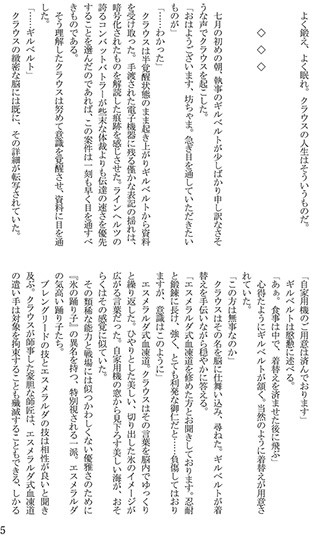 よく鍛え、よく眠れ。クラウスの人生はそういうものだ。
◇　◇　◇
七月の初めの朝、執事のギルベルトが少しばかり申し訳なさそ
うな声でクラウスを起こした。
「おはようございます、坊ちゃま。急ぎ目を通していただきたい
ものが」
「……わかった」
クラウスは半覚醒状態のまま起き上がりギルベルトから資料
を受け取った。手渡された電子機器に残る僅かな表記の揺れは、
暗号化されたものを解読した痕跡を感じさせる。ラインヘルツの
誇るコンバットバトラーが些末な体裁よりも伝達の速さを優先
することを選んだのであれば、この案件は一刻も早く目を通すべ
きものである。
そう理解したクラウスは努めて意識を覚醒させ、資料に目を通
した。
「……ギルベルト」
クラウスの緻密な脳には既に、その詳細が転写されていた。
「自家用機のご用意は済んでおります」
ギルベルトは慇懃に述べる。
「ああ。食事は中で、着替えを済ませた後に飛ぶ」
心得たようにギルベルトが頷く。当然のように着替えが用意さ
れていた。
「この方は無事なのか」
クラウスはその名を脳に仕舞い込み、尋ねた。ギルベルトが着
替えを手伝いながら穏やかに答える。
「エスメラルダ式血凍道を修めた方とお聞きしております。忍耐
と鍛錬に長け、強く、とても利発な御仁だと……負傷してはおり
ますが、意識はこのように」
エスメラルダ式血凍道。クラウスはその言葉を脳内でゆっくり
と繰り返した。ひやりとした美しい、切り出した氷のイメージが
広がる言葉だった。自家用機の窓から見下ろす美しい海が、おそ
らくはその感覚に似ていた。
その類稀な能力と戦場には似つかわしくない優雅さのために
『氷の踊り子』の異名を持つ、特別視される一派。エスメラルダ
の気高い踊り子たち。
ブレングリードの技とエスメラルダの技は相性が良いと聞き
及ぶ。クラウスが師事した豪胆な師匠は、エスメラルダ式血凍道
の遣い手は対象を拘束することも殲滅することもできる、しかる
5